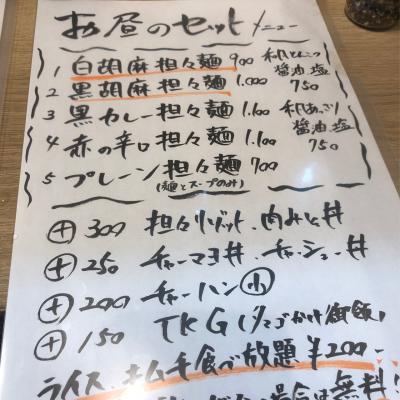 お昼のセットメニュー
1 白胡麻担々麺 900
2 黒胡麻担々麺 1.000
3 黒カレー担々麺 1.100
4 赤の辛口担々麺 1.100
5 プレーン担々麺 700
(麺とスープのみ)
和風とんこつ
醤油 塩
750
和風あっさり
醤油 塩
750
⊕300 担々リゾット、肉みそ丼
⊕250 チャーマヨ丼、チャーシュー丼
⊕200 チャーハン小
⊕150 TKG(タマゴかけ御飯)
ライス、キムチ食べ放題 ¥200-
場合は無料!